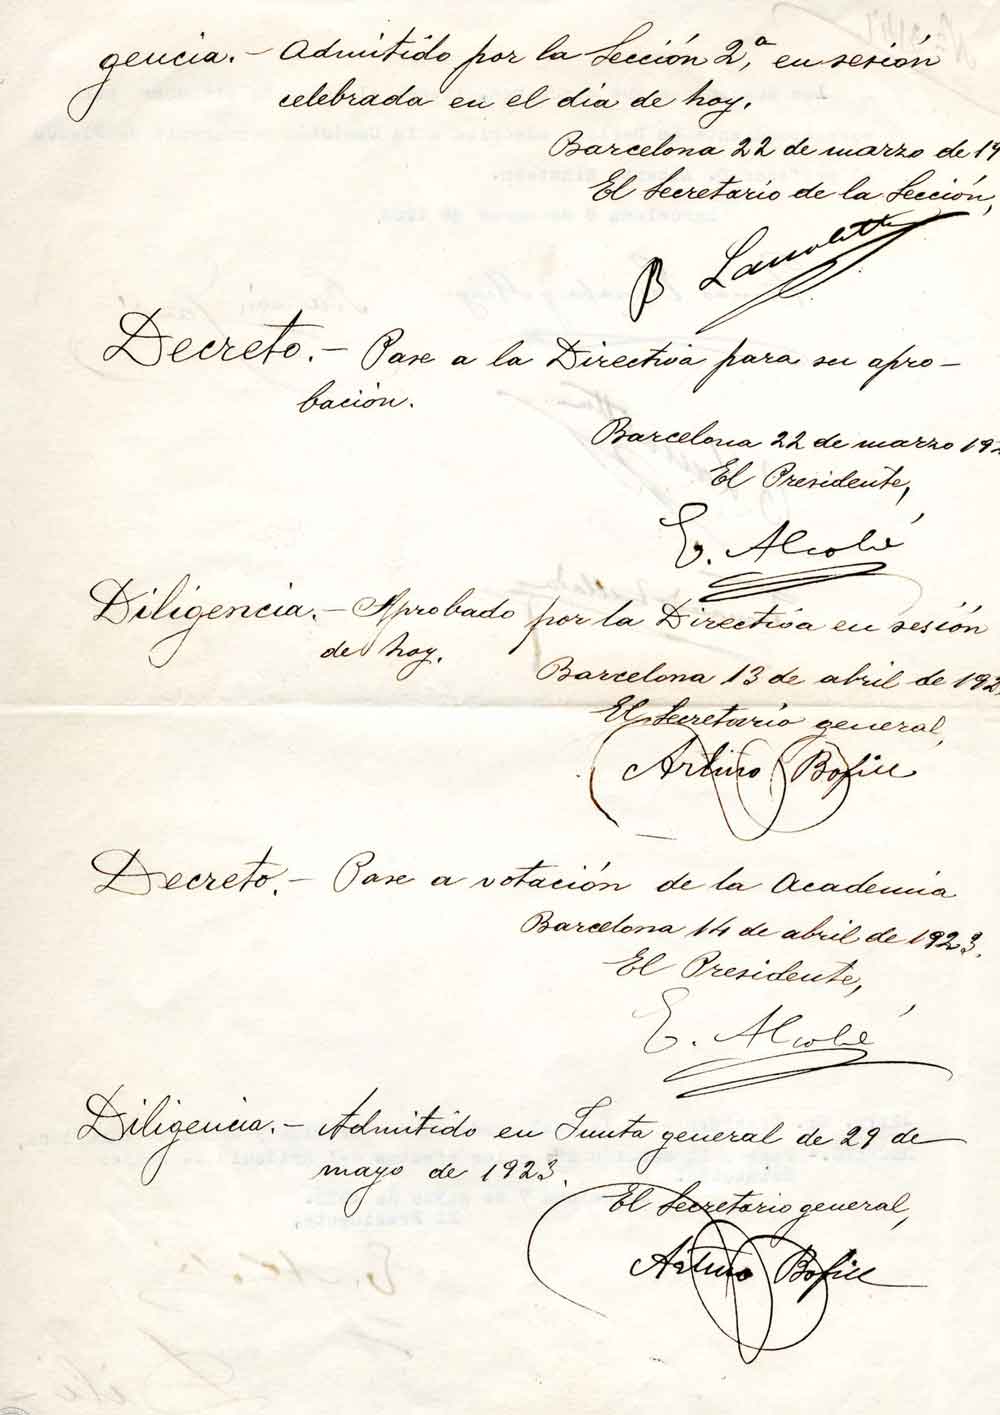 gencia.- Admitido por la Sección 2ª, en sesión
celebrada en el día de hoy.
Barcelona 22 de marzo de 19
El Secretario de la Sección,
Decreto.- Pase a la Directiva para su apro-
bación.
Barcelona 22 de marzo 192
El Presidente,
E. Alcobé
Diligencia.- Aprobado por la Directiva en sesión
de hoy.
Barcelona 13 de abril de 192
El Secretario general,
Arturo Bofill
Decreto.- Pase a votación de la Academia
Barcelona 14 de abril de 1923.
El Presidente,
E. Alcobé
Diligencia.- Admitido en Junta general de 29 de
mayo de 1923.
El Secretario general,
Arturo Bofill